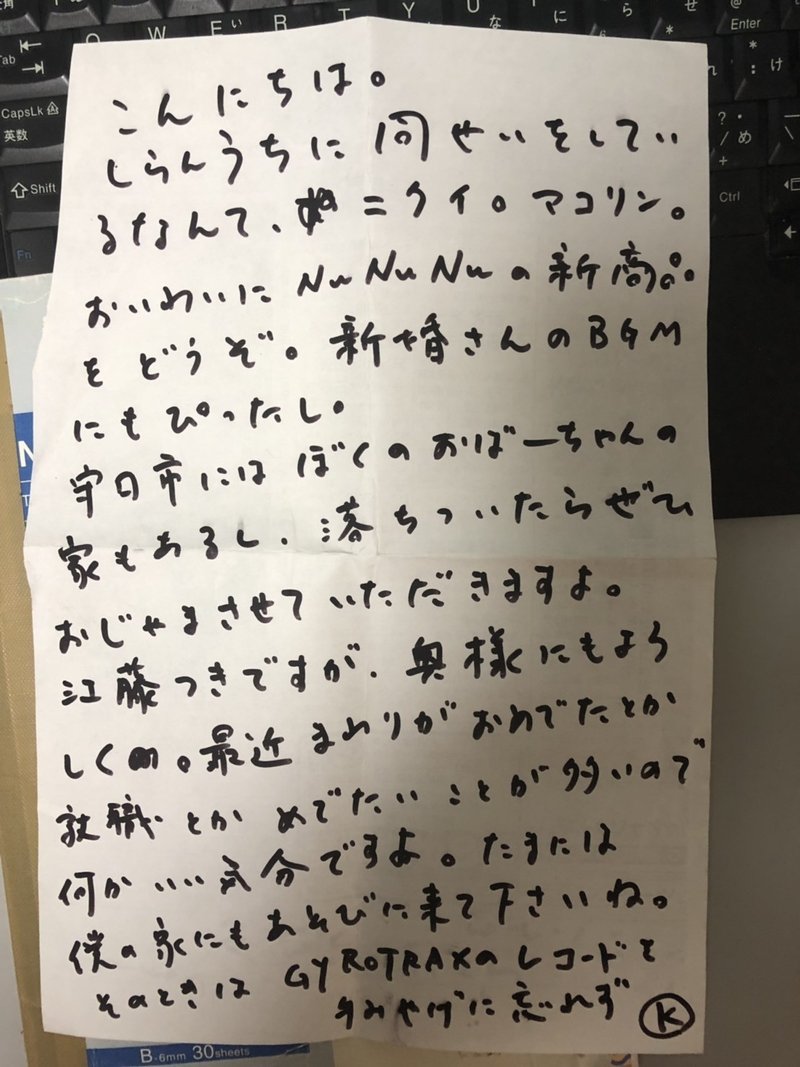 こんにちは。
しらんうちに同せいをしてい
るなんて、ニクイ。マコリン。
おいわいにNuNuNuの新商品。
をどうぞ。新婚さんのBGM
にもぴったし。
日市にはぼくのおばーちゃんの
家もあるし、落ちついたらぜひ
おじゃまさせていただきますよ。
江藤つきですが、奥様にもよろ
しく。最近まわりがおめでたとか
就職とかめでたいことが多いので
何かいい気分ですよ。たまには
僕の家にもあそびに来て下さいね。
そのときはGYROTRAXのレコードを
みやげに忘れず K
Tab
CapsLk
英数
Shift
Fn
Enter
Ctrl
W
E い
R
T
Y
U
な
に
ら
せ
れ
け
め
B-6mm 30sheets